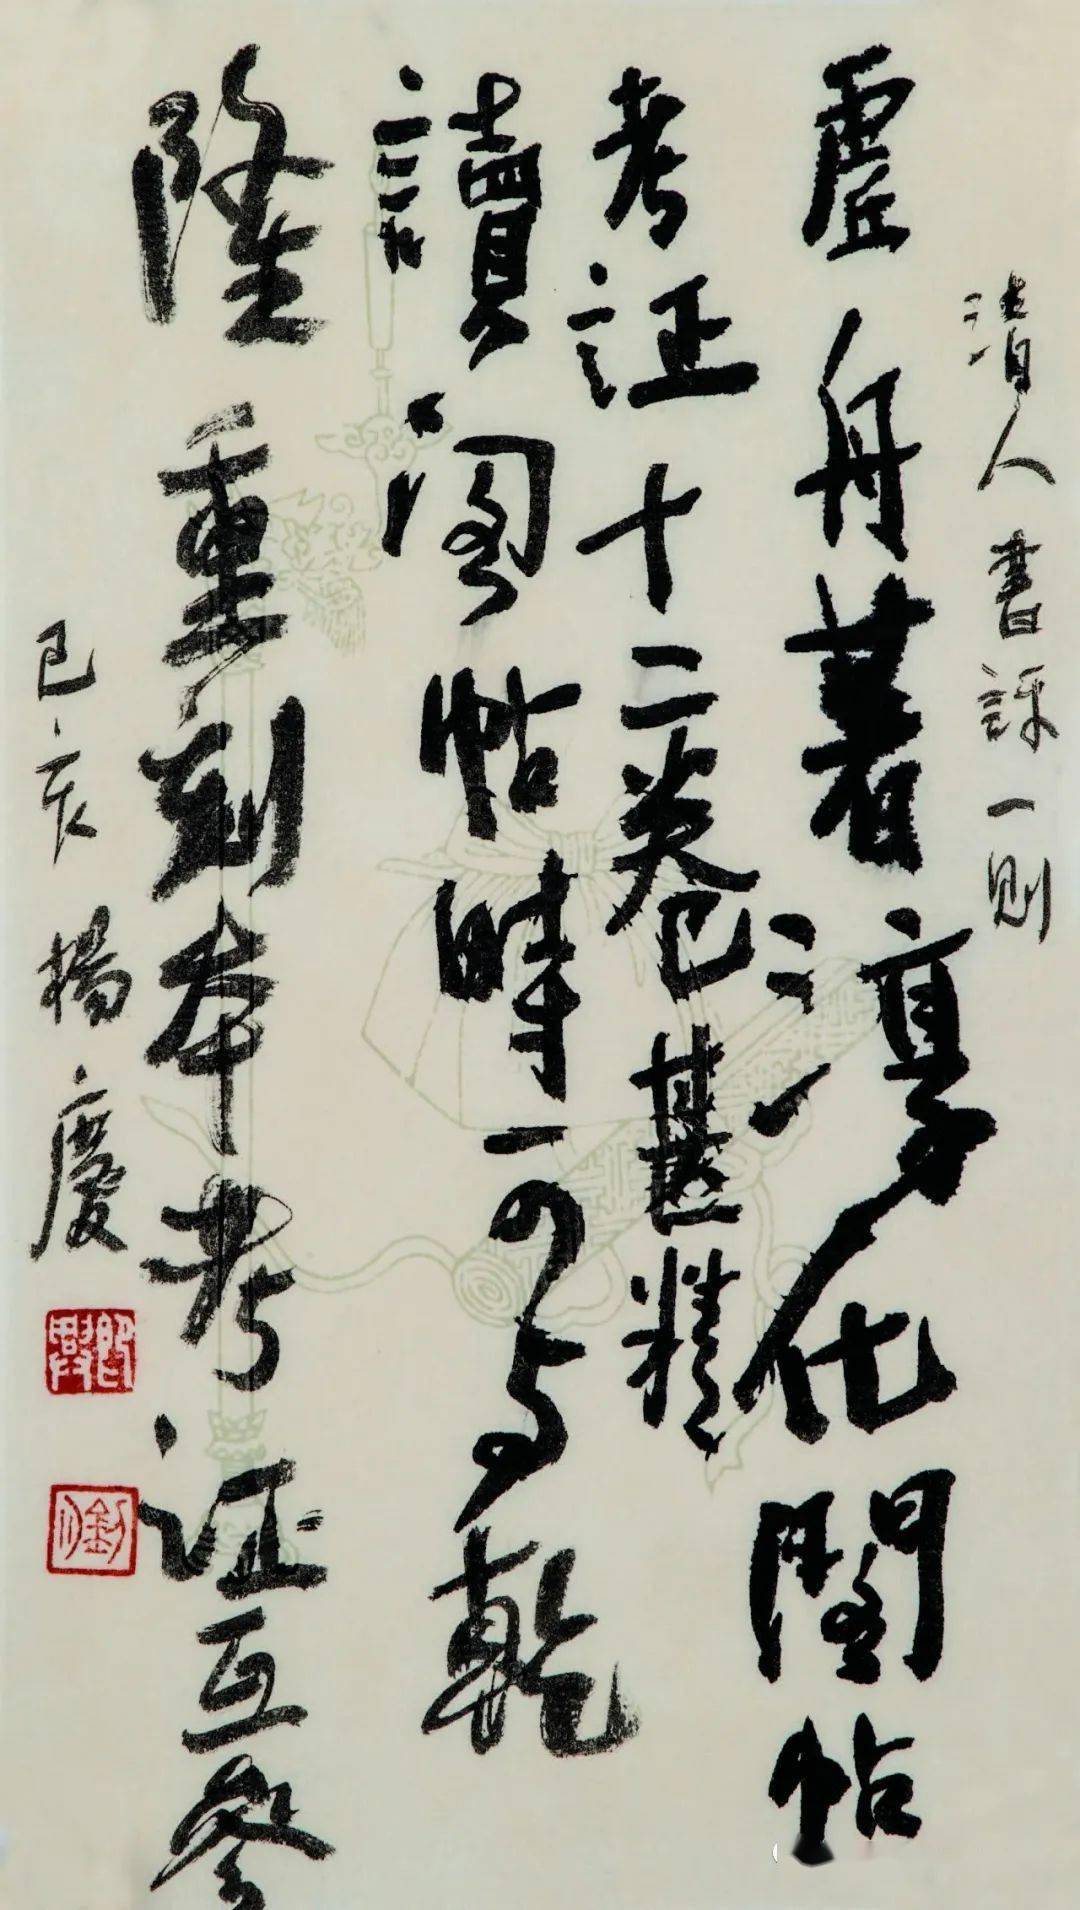 清人書評一則
虛舟著淳化閣帖
考証十二卷已甚精
讀閣帖時可与乾
隆重刻本考证互參
己亥楊慶